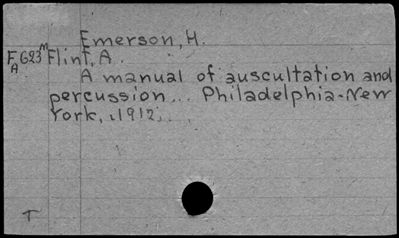 Emerson, H.
F.G23M Flint, A.
A
A manual of auscultation and
percussion... Philadelphia-New
York, 1912.
T